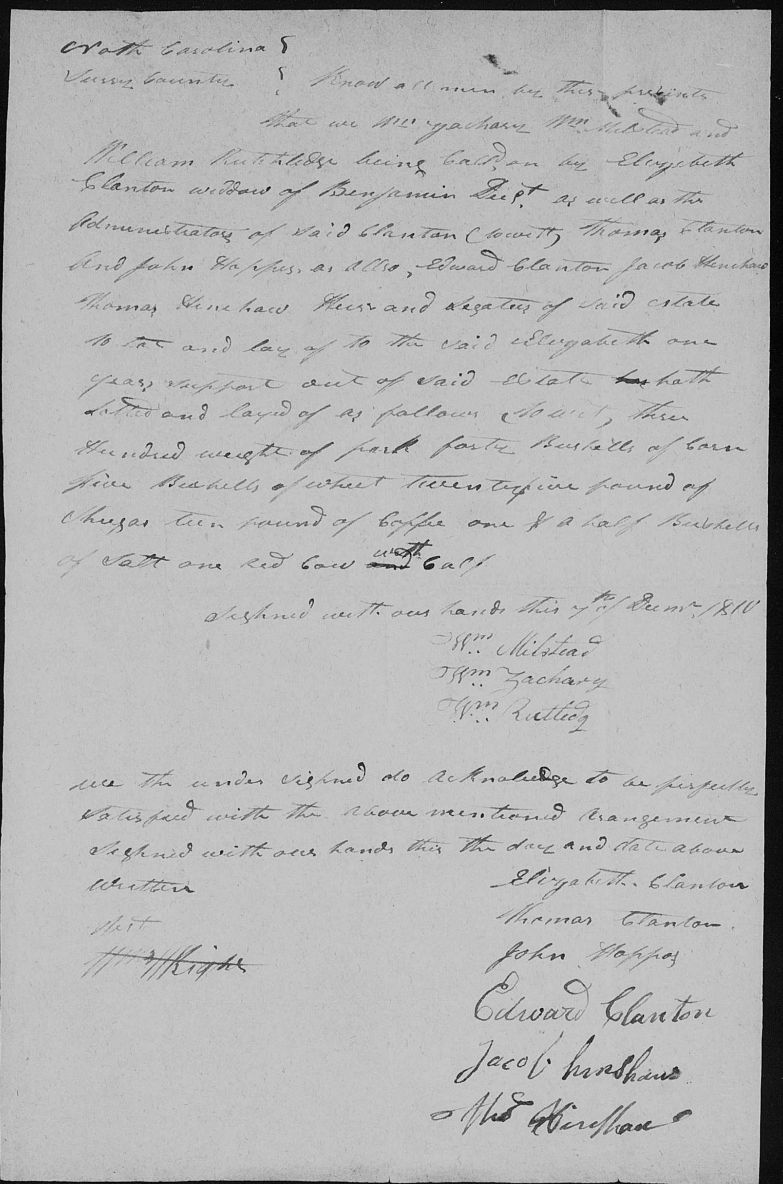 North Carolina }
Surry County } Know all men by these presents
that we Wm Zachary Wm Milstead and
William Rutledge being Calld on by Elizabeth
Clanton widdow of Benjamin Decst. as well as the
Administrators of Said Clanton (towitt) Thomas Clanton
And John Hoppes as allso, Edward Clanton Jacob Henshaw
Thomas Henshaw Heirs and Legatees of Said estate
to and lay of to the said Elizabeth one
years support out of said Estate hath
Setled and layed of as follows towit, three
Hundred weight of pork forty Bushells of Corn
five Bushells of wheet twentyfive pound of
Shugar teen pound of Coffee one & a half Bushells
of Salt one Red Cow with Calf
Sighned with our hands this 7th of Decmr. 1810
Wm Milstead
Wm Zachary
Wm Rutledg
we the under Sighned do acknoledge to be perfectly
Satisfied with the above mentioned arangement
Sighned with our hands this the day and date above
written
Elizabeth Clanton
Test
Thomas Clanton
Wm Wright
John Hoppes
Edward Clanton
Jacob hinshaw
Thos Hinshaw